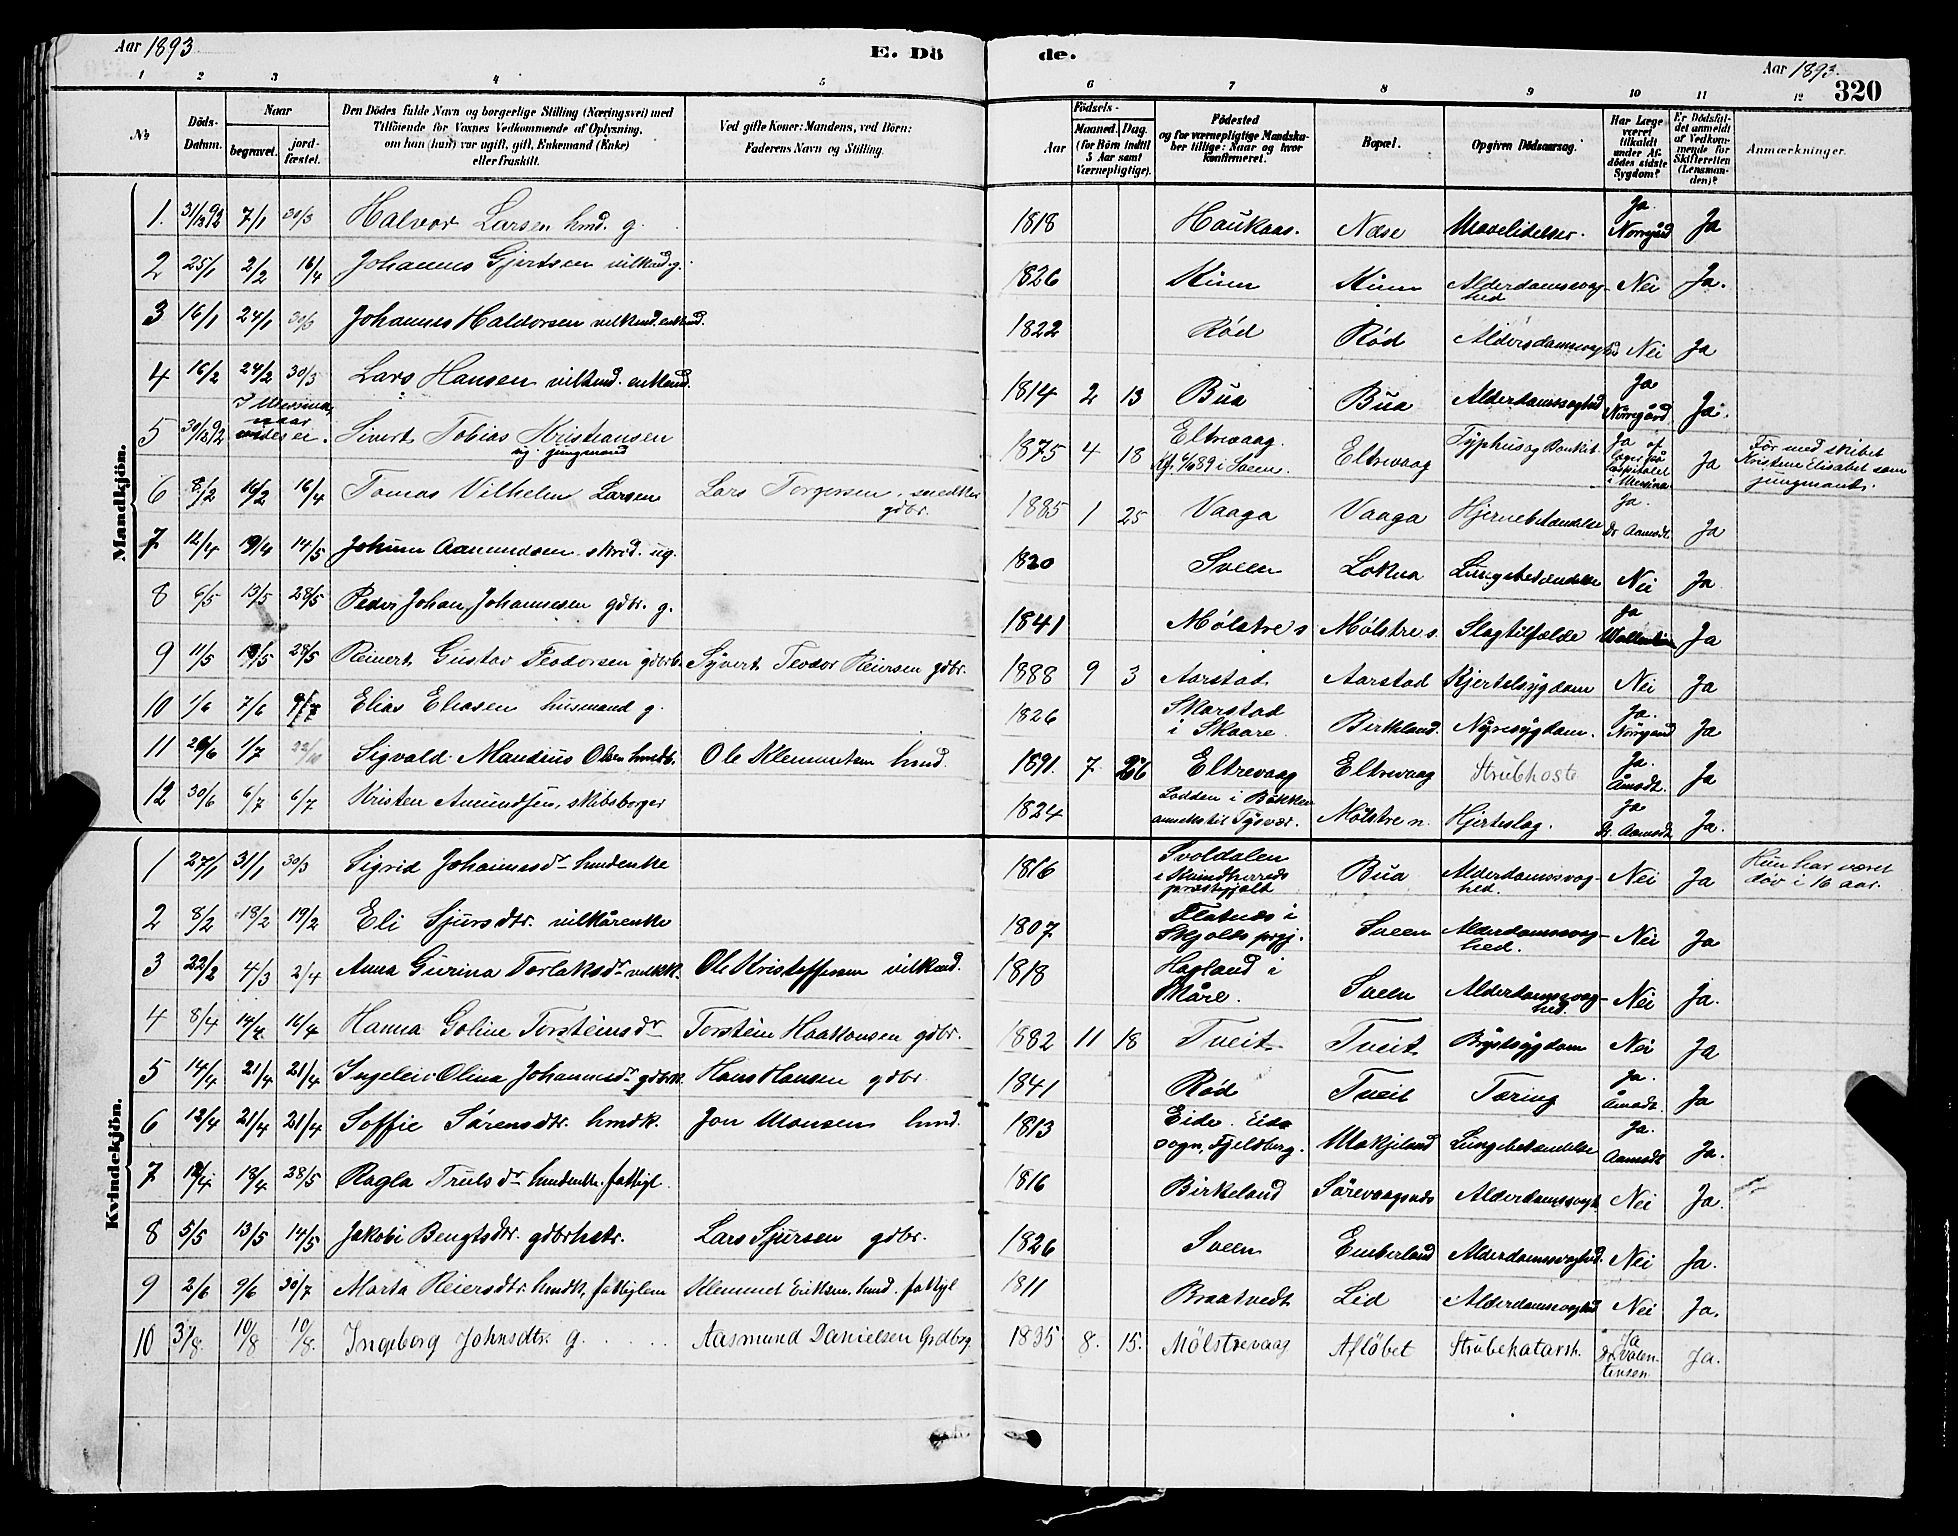 Aar 1893.
E. Döde.
Aar 1893.
320
1 2 3 4 5 6 7 8 9 10 11 12
No
Döds-Datum.
Naar
begravet.
jord-fæstet.
Den Dödes fulde Navn og borgerlige Stilling (Næringsvei) med
Tilföiende for Voxnes Vedkommende af Oplysning,
om han (hun) var ugift, gift, Enkemand (Enke)
eller fraskilt.
Ved gifte Koner: Mandens, ved Börn:
Faderens Navn og Stilling.
Aar
Födsels-
Maaned. Dag.
(for Börn indtil
5 Aar samt
Værnepligtige).
Födested
og for værnepligtige Mandska-
ber tillige: Naar og hvor
konfirmeret.
Bopæl.
Opgiven Dödsaarsag.
Har Læge
været
tilkaldt
under Af-
dödes sidste
Sygdom?
Er Dödsfal-
det anmeldt
af Vedkom-
mende for
Skifteretten
(Lensman-
den)?
Anmærkninger.
Mandkjön.
1. 31/12 92 7/1 30/3 Halvor Larsen hmd. g. 1818 Haukaas. Næse Mavelidelser. Ja. Norregård Ja
2 25/1 2/2 16/4 Johannes Gjertsen vilkmd. g. 1826 Stuen Stuen Alderdomssvag-hed Nei Ja.
3 16/1 24/1 30/3 Johannes Haldorsen vilkmd. enkmd. 1822 Rød Rød Alderdomssvaghd Nei Ja
4 16/2 24/2 30/3 Lars Hansen vilkmd. enkmd. 1814 2 13 Bua Bua Alderdomssvaghed Ja Norregård Ja.
5 30/12 92 I Messina, naar vides ei. Sivert Tobias Kristiansen ug. jungmand 1875 4 18 Eltrevaag. Kf. 6/10 89 i Sveen. Eltrevaag Typhus og Bronkit. Ja af læger på hospitalet i Messina Ja Før med skibet Kristine Elisabet som jungmand.
6 8/2 16/2 16/4 Tomas Vilhelm Larsen Lars Torgersen, snedker gdbr. 1885 1 25 Vaaga Vaaga Hjernebetændelse Ja. Dr Aamodt. Ja
7 12/4 19/4 14/5 Johan Aamundsen skrd. ug. 1820 Sveen Lokna Lungebetændelse Nei Ja
8 6/5 13/5 28/5 Peder Johan Johannesen gdbr. g. 1841 Mølstre s Mølstre s. Slagtilfælde Ja Ja
9 11/5 19/5 28/5 Reinert Gustav Teodorsen gdbrb. Syvert Teodor Reiersen gdbr. 1888 9 3 Aarstad Aarstad Kjertelsygdom Nei Ja
10 1/6 7/6 9/7 Elias Eliasen husmand g. 1826 Skarstad i Skaare. Birkeland. Nyresygdom. Ja. Norregård Ja
11 26/6 1/7 22/10 Sigvald Mandius Olsen hmdb. Ole Klemmetsen hmd. 1891. 7 26 Eltrevaag Eltrevaag Strubhoste Ja. Åmodt. Ja
12 30/6 6/7 6/7 Kristen Amundsen, skibsborger 1824 Lodden i Bokken anneks til Tysvær. Mølstre n. Hjerteslag. Ja Dr. Aamodt Ja.
Kvindekjön.
1 27/1 31/1 30/3 Sigrid Johannesdr hmdenke 1816 Svoldalen i Skindherreds præstegjæld Bua Alderdomssvag-hed. Nei Ja Hun har været døv i 16 aar.
2 8/2 18/2 19/2 Eli Sjursdtr. vilkårenke 1807 Flatnæs i Skjolds prgj. Sveen Alderdomssvag-hed. Nei Ja
3 22/2 4/3 2/4 Anna Gurina Torlaksdr vilkk. Ole Kristoffersen vilkmd. 1818 Hagland i Skåre. Sveen Alderdomssvag-hed. Nei Ja.
4 8/4 14/4 16/4 Hanna Goline Torsteinsdr Torstein Haakonsen gdbr. 1882 11 18 Tveit Tveit Brystsygdom Nei Ja
5 14/4 21/4 21/4 Ingeleiv Olina Johannesdr gdbrk. Hans Hansen gdbr. 1841 Rød Tveit Tæring Ja. Åmodt. Ja
6 12/4 21/4 21/4 Soffie Sørensdtr. hmdk. Jon Monsen hmd. 1813 Eide. Eids sogn, Fjeldberg. Mokjeland Lungebetændelse Ja. Aamodt Ja.
7 12/4 18/4 28/5 Ragla Trulsdr hmdenke fattigl. 1816 Birkeland Sørevaagsnæs Alderdomssvagh Nei Ja.
8 5/5 13/5 14/5 Jakobi Bengtsdtr. gdbrhstr. Lars Sjursen gdbr. 1826 Sveen Emberland Alderdomssvaghed. Nei Ja.
9 2/6 9/6 30/7 Marta Reiersdtr. hmdk, fattiglem Klemmet Eriksen. hmd. fattigl 1811 Braatvedt Lid Alderdomssvaghd Nei Ja.
10 3/8. 10/8 10/8. Ingeborg Johnsdtr. g. Aasmund Danielsen Grdbrg. 1835 8. 15. Mølstrevaag Afløbet Strubekatarrh. Ja Dr Valentinsen. Ja.